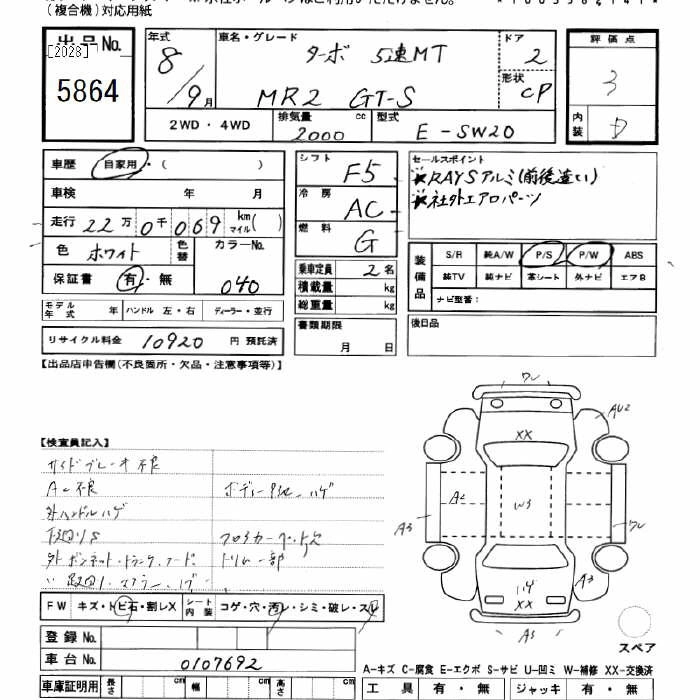 (複合機)対応用紙
出品No.
[2028]
5864
年式
8/9月
車名・グレード
ターボ 5速MT
MR2 GT-S
ドア
2
形状
CP
評価点
3
内装
D
2WD・4WD
排気量 2000 cc
型式 E-SW20
車歴 自家用・( )
車検 年 月
走行 22万0千069 km マイル( )
色 ホワイト
色替
カラーNo. 040
保証書 有・無
モデル年式 年 ハンドル 左・右 ディーラー・並行
リサイクル料金 10920 円 預託済
シフト F5
冷房 AC
燃料 G
乗車定員 2名
積載量 kg
総重量 kg
書類期限
月 日
セールスポイント
★RAYSアルミ(前後違い)
★社外エアロパーツ
装備品
S/R 純A/W P/S P/W ABS
純TV 純ナビ 革シート 外ナビ エアB
ナビ型番:
後日品
【出品店申告欄(不良箇所・欠品・注意事項等)】
【検査員記入】
サイドブレーキ不良
AC不良
外ハンドルハゲ
下回りS
フロアカーペット欠
トリム一部
FW キズ・トビ石・割レX
シート内装 コゲ・穴・汚レ・シミ・破レ・スレ
登録No.
車台No. 0107692
車庫証明用 長さ cm 幅 cm 高さ cm
ワレ
AU2
XX
A2
W3
A3
ワレ
A3
14
XX
A3
スペア
A-キズ C-腐食 E-エクボ S-サビ U-凹ミ W-補修 XX-交換済
工具 有・無 ジャッキ 有・無